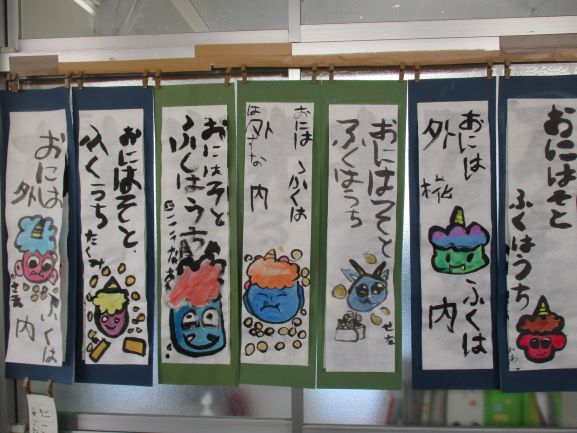 おには
外
ふくは
内
おにはそと
ふくうち
たくみ
おにはそと
ふくはうち
おには
外
ふくは
内
おにはそと
ふくはうち
せな
おには
外
ふくは
内
おにはそと
ふくはうち